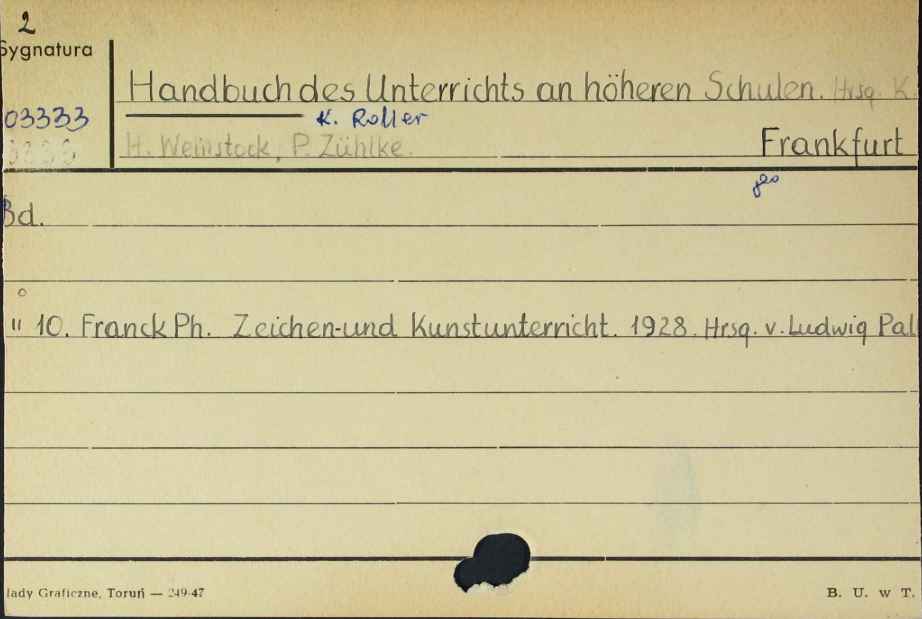 2
Sygnatura
Handbuch des Unterrichts an höheren Schulen. Hrsg. K.
03333
K. Roller
H. Weinstock, P. Zühlke.
Frankfurt
Bd.
" 10. Franck Ph. Zeichen-und Kunstunterricht. 1928. Hrsg. v. Ludwig Pal
lady Graficzne, Toruń — 249-47
B. U. w T.